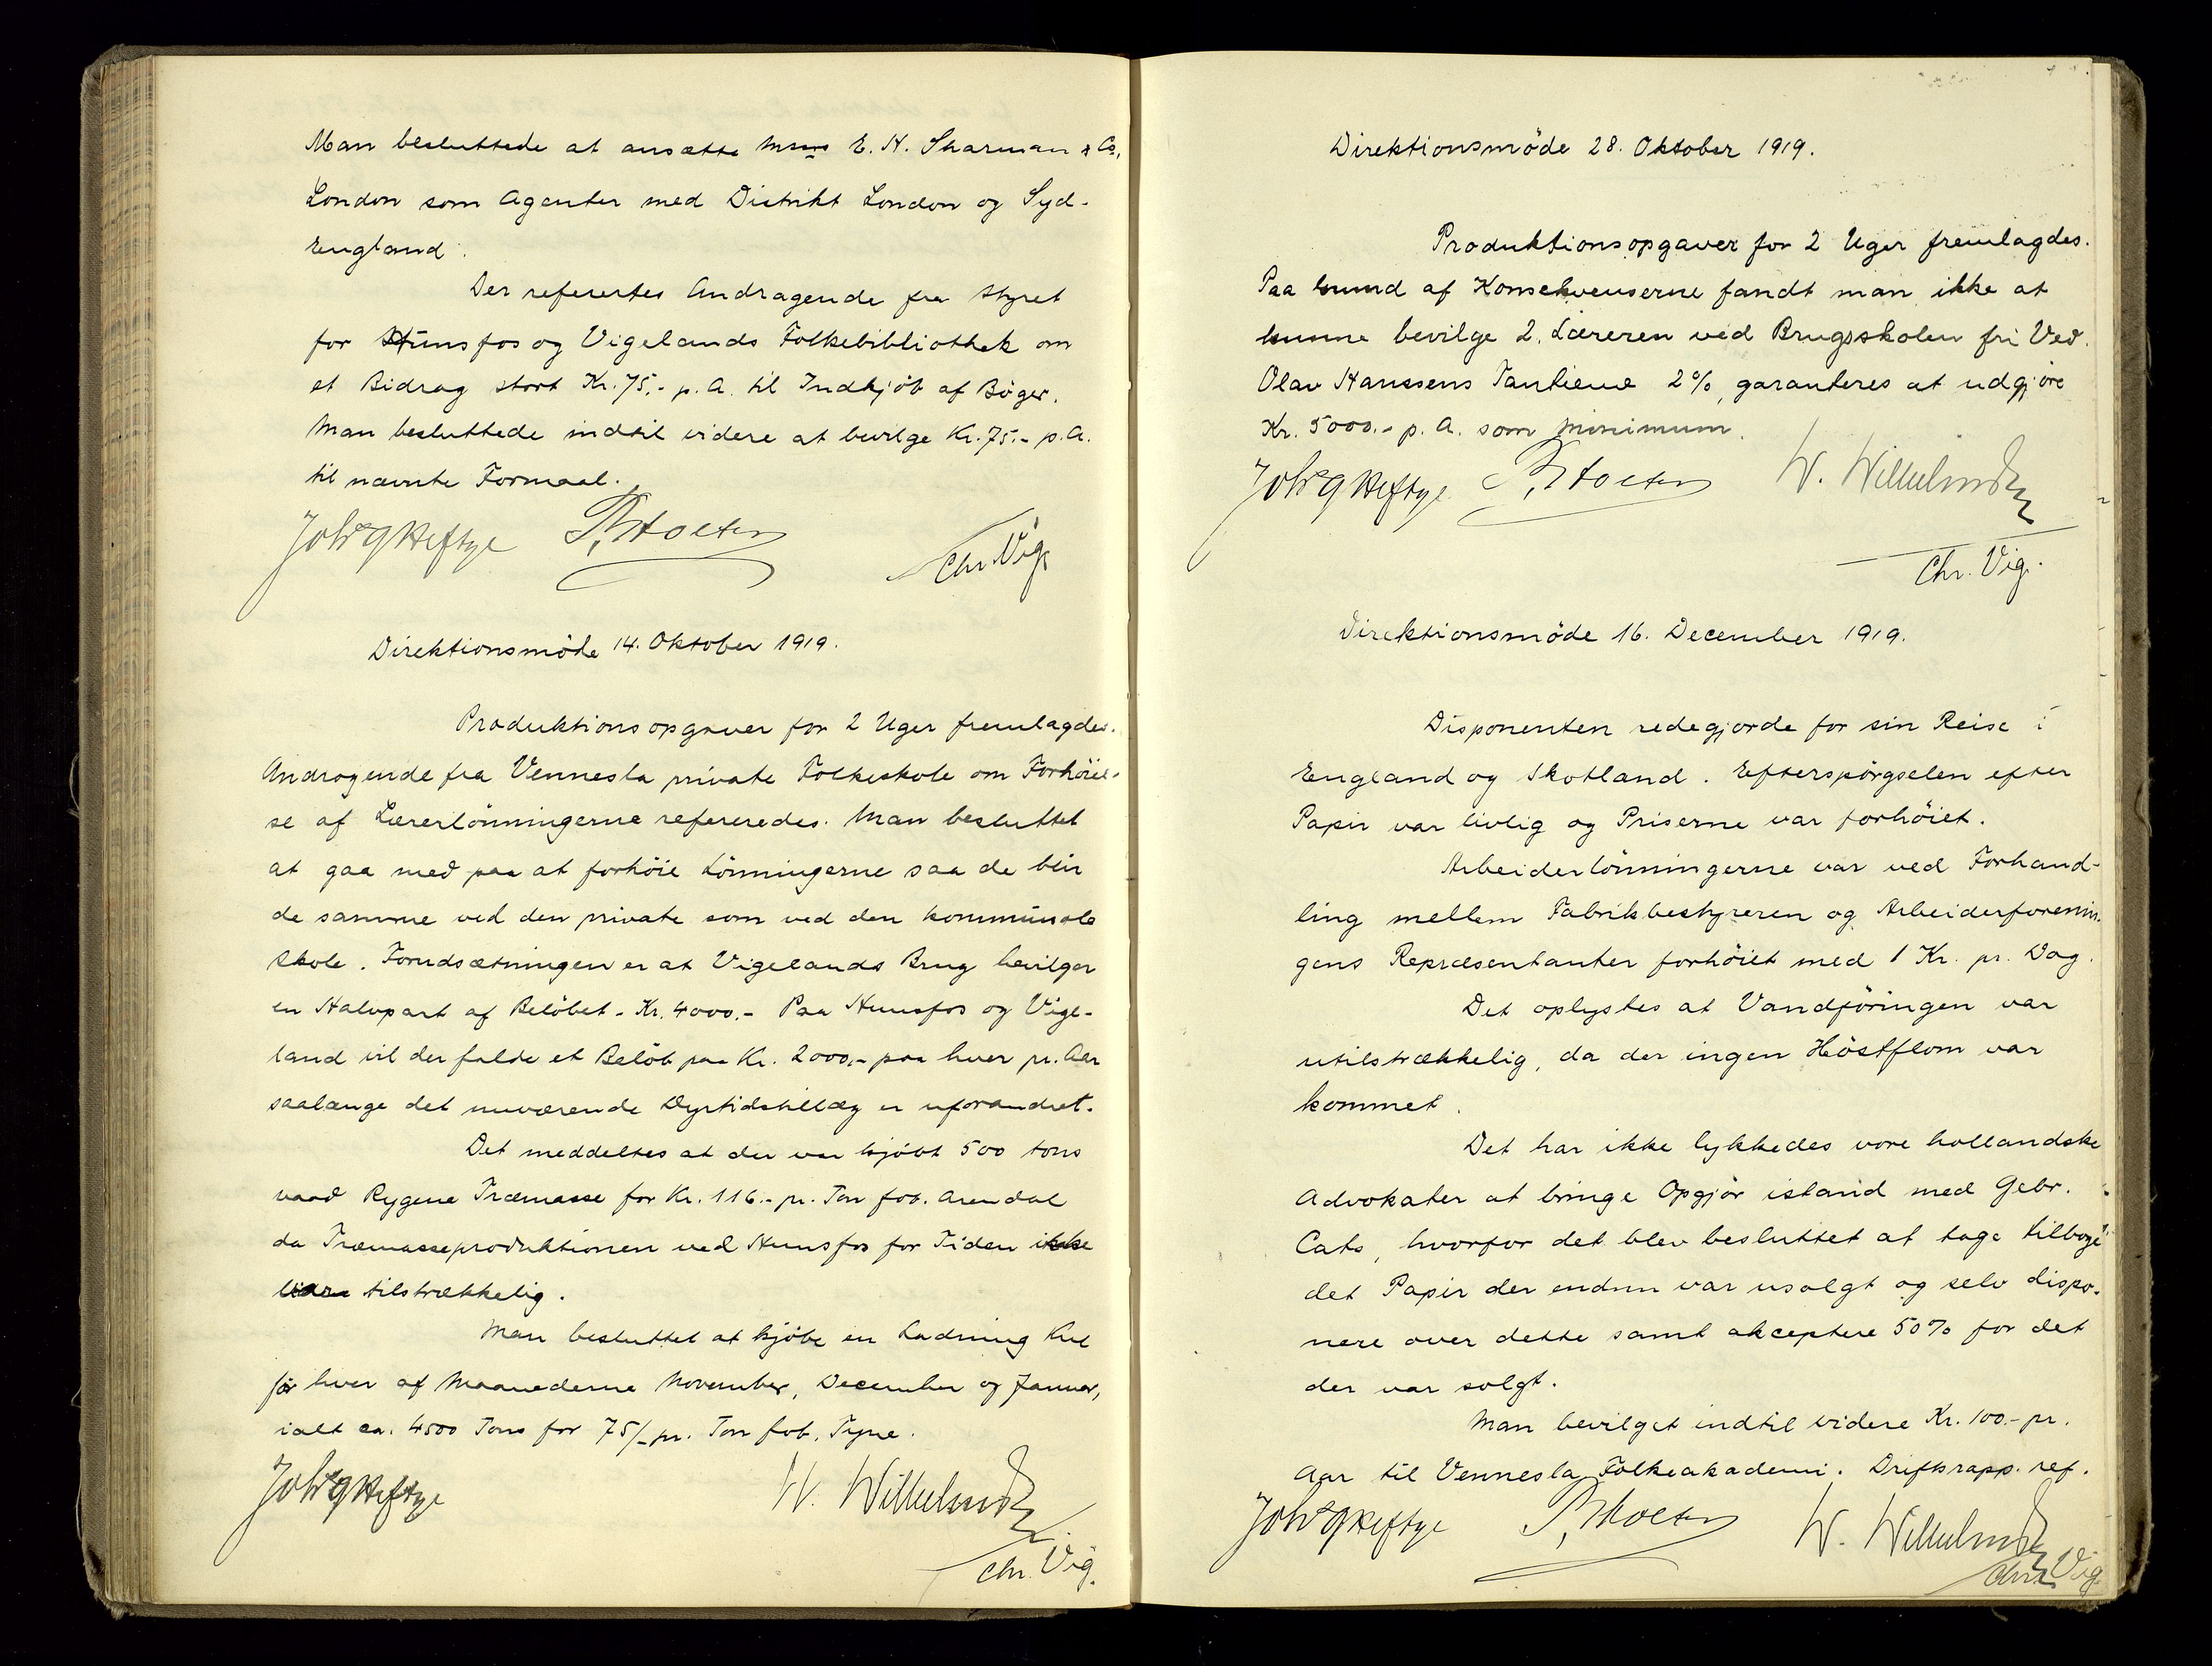 Man besluttede at ansætte Mssrs E. H. Sharman & Co,
London som Agenter med Distrikt London og Syd-
England.
Der refertes Andragende fra Styret
for Hunsfos og Vigelands Folkebibliothek om
et Bidrag stort Kr. 75.- p. A. til Indkjöb af Böger.
Man besluttede indtil videre at bevilge Kr. 75.- p. A.
til nævnte Formaal.
Joh G Heftye P. Holten Chr. Vig.
Direktionsmöde 14. Oktober 1919.
Produktionsopgaver for 2 Uger fremlagdes.
Andragende fra Vennesla private Folkeskole om Forhöiel-
se af Lærerlönningerne refereredes. Man besluttet
at gaa med paa at forhöie Lönningerne saa de blir
de samme ved den private som ved den kommunale
Skole. Forudsætningen er at Vigelands Brug bevilger
en Halvpart af Belöbet - Kr. 4000.- Paa Hunsfos og Vige-
land vil der falde et Belöb paa Kr. 2000,- paa hver pr. Aar
saalænge det nuværende Dyrtidstillæg er uforandret.
Det meddeltes at der var kjöbt 500 tons
vaad Rygene Træmasse for Kr. 116.- pr. Ton fob. Arendal
da Træmasseproduktionen ved Hunsfos for Tiden ikke
tilstrækkelig.
Man besluttet at kjöbe en Ladning Kul
för hver af Maanederne November, December og Januar,
ialt ca. 4500 Tons for 75/- pr. Ton fob. Tyne.
Joh G Heftye W. Wilhelmsen
Chr. Vig.
Direktionsmöde 28. Oktober 1919.
Produktionsopgaver for 2 Uger fremlagdes.
Paa Grund af Konsekvenserne fandt man ikke at
kunne bevilge 2. Læreren ved Brugsskolen fri Ved.
Olav Hanssens Tantieme 2%, garanteres at udgjöre
Kr. 5000.- p. A. som Minimum.
Joh G Heftye P. Holten W. Wilhelmsen
Chr. Vig.
Direktionsmöde 16. December 1919.
Disponenten redegjorde for sin Reise i
England og Skotland. Efterspörgselen efter
Papir var livlig og Priserne var forhöiet.
Arbeiderlönningerne var ved Forhand-
ling mellem Fabrikbestyreren og Arbeiderforenin-
gens Repræsentanter forhöiet med 1 Kr. pr. Dag.
Det oplystes at Vandföringen var
utilstrækkelig, da der ingen Höstflom var
kommet.
Det har ikke lykkedes vore hollandske
Advokater at bringe Opgjör istand med Gebr.
Cats, hvorfor det blev besluttet at tage tilbage
det Papir der endnu var usolgt og selv dispo-
nere over dette samt akceptere 50% for det
der var solgt.
Man bevilget indtil videre Kr. 100.- pr.
Aar til Vennesla Folkeakademi. Driftsrapp. ref.
Joh G Heftye P. Holten W. Wilhelmsen
Chr. Vig.